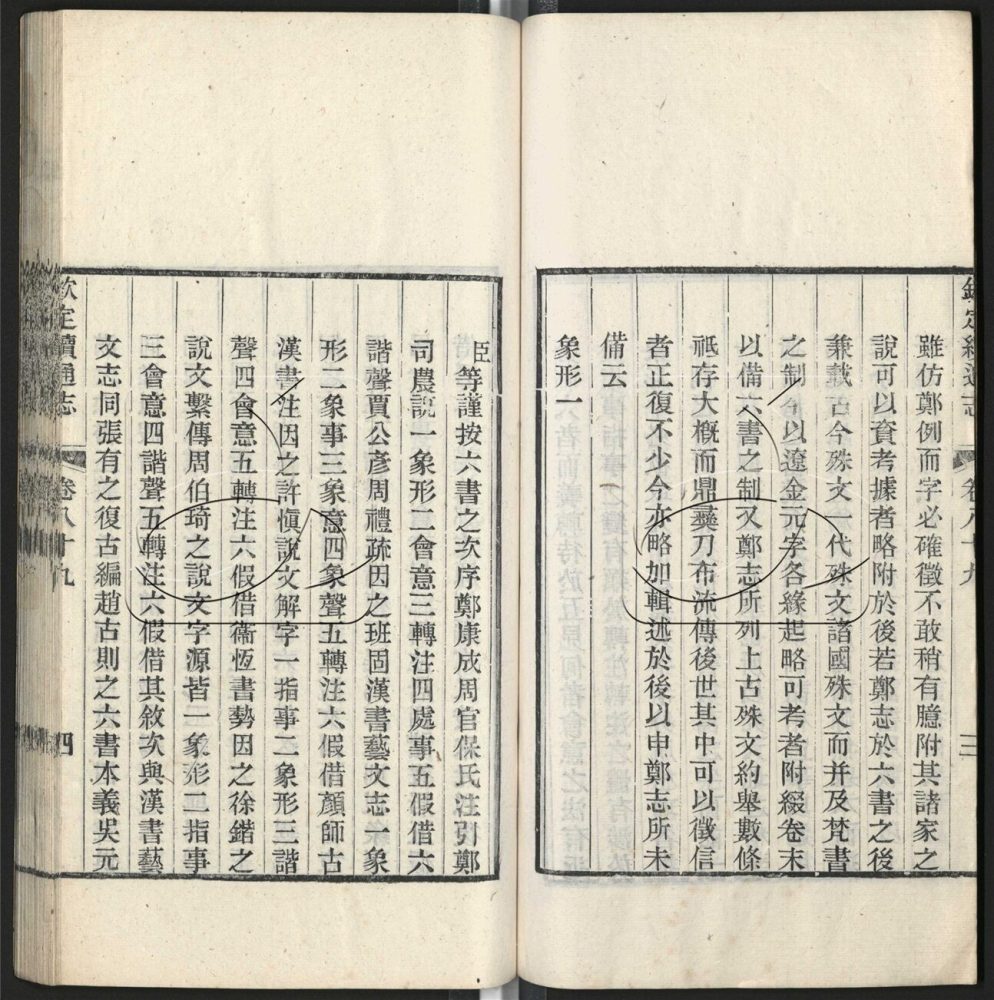 欽定續通志 卷八十九 三
雖仿鄭例而字必確徵不敢稍有臆附其諸家之
說可以資考據者略附於後若鄭志於六書之後
兼載古今殊文一代殊文諸國殊文而并及梵書
之制今以遼金元字各緣起略可考者附綴卷末
以備六書之制又鄭志所列上古殊文約舉數條
祗存大概而鼎彝刀布流傳後世其中可以徵信
者正復不少今亦略加輯述於後以申鄭志所未
備云
象形一
臣等謹按六書之次序鄭康成周官保氏注引鄭
司農說一象形二會意三轉注四處事五假借六
諧聲賈公彥周禮疏因之班固漢書藝文志一象
形二象事三象意四象聲五轉注六假借顏師古
漢書注因之許愼說文解字一指事二象形三諧
聲四會意五轉注六假借衞恆書勢因之徐鍇之
說文繫傳周伯琦之說文字源皆一象形二指事
三會意四諧聲五轉注六假借其敘次與漢書藝
文志同張有之復古編趙古則之六書本義吳元
欽定續通志 卷八十九 四